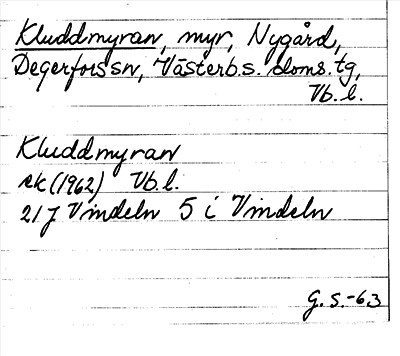 Kluddmyran, myr, Nygård,
Degerfors sn, Västerb.s. doms. tg,
Vb. l.
Kluddmyran
rk (1962) Vb. l.
21J Vindeln 5 i Vindeln
G. S. -63